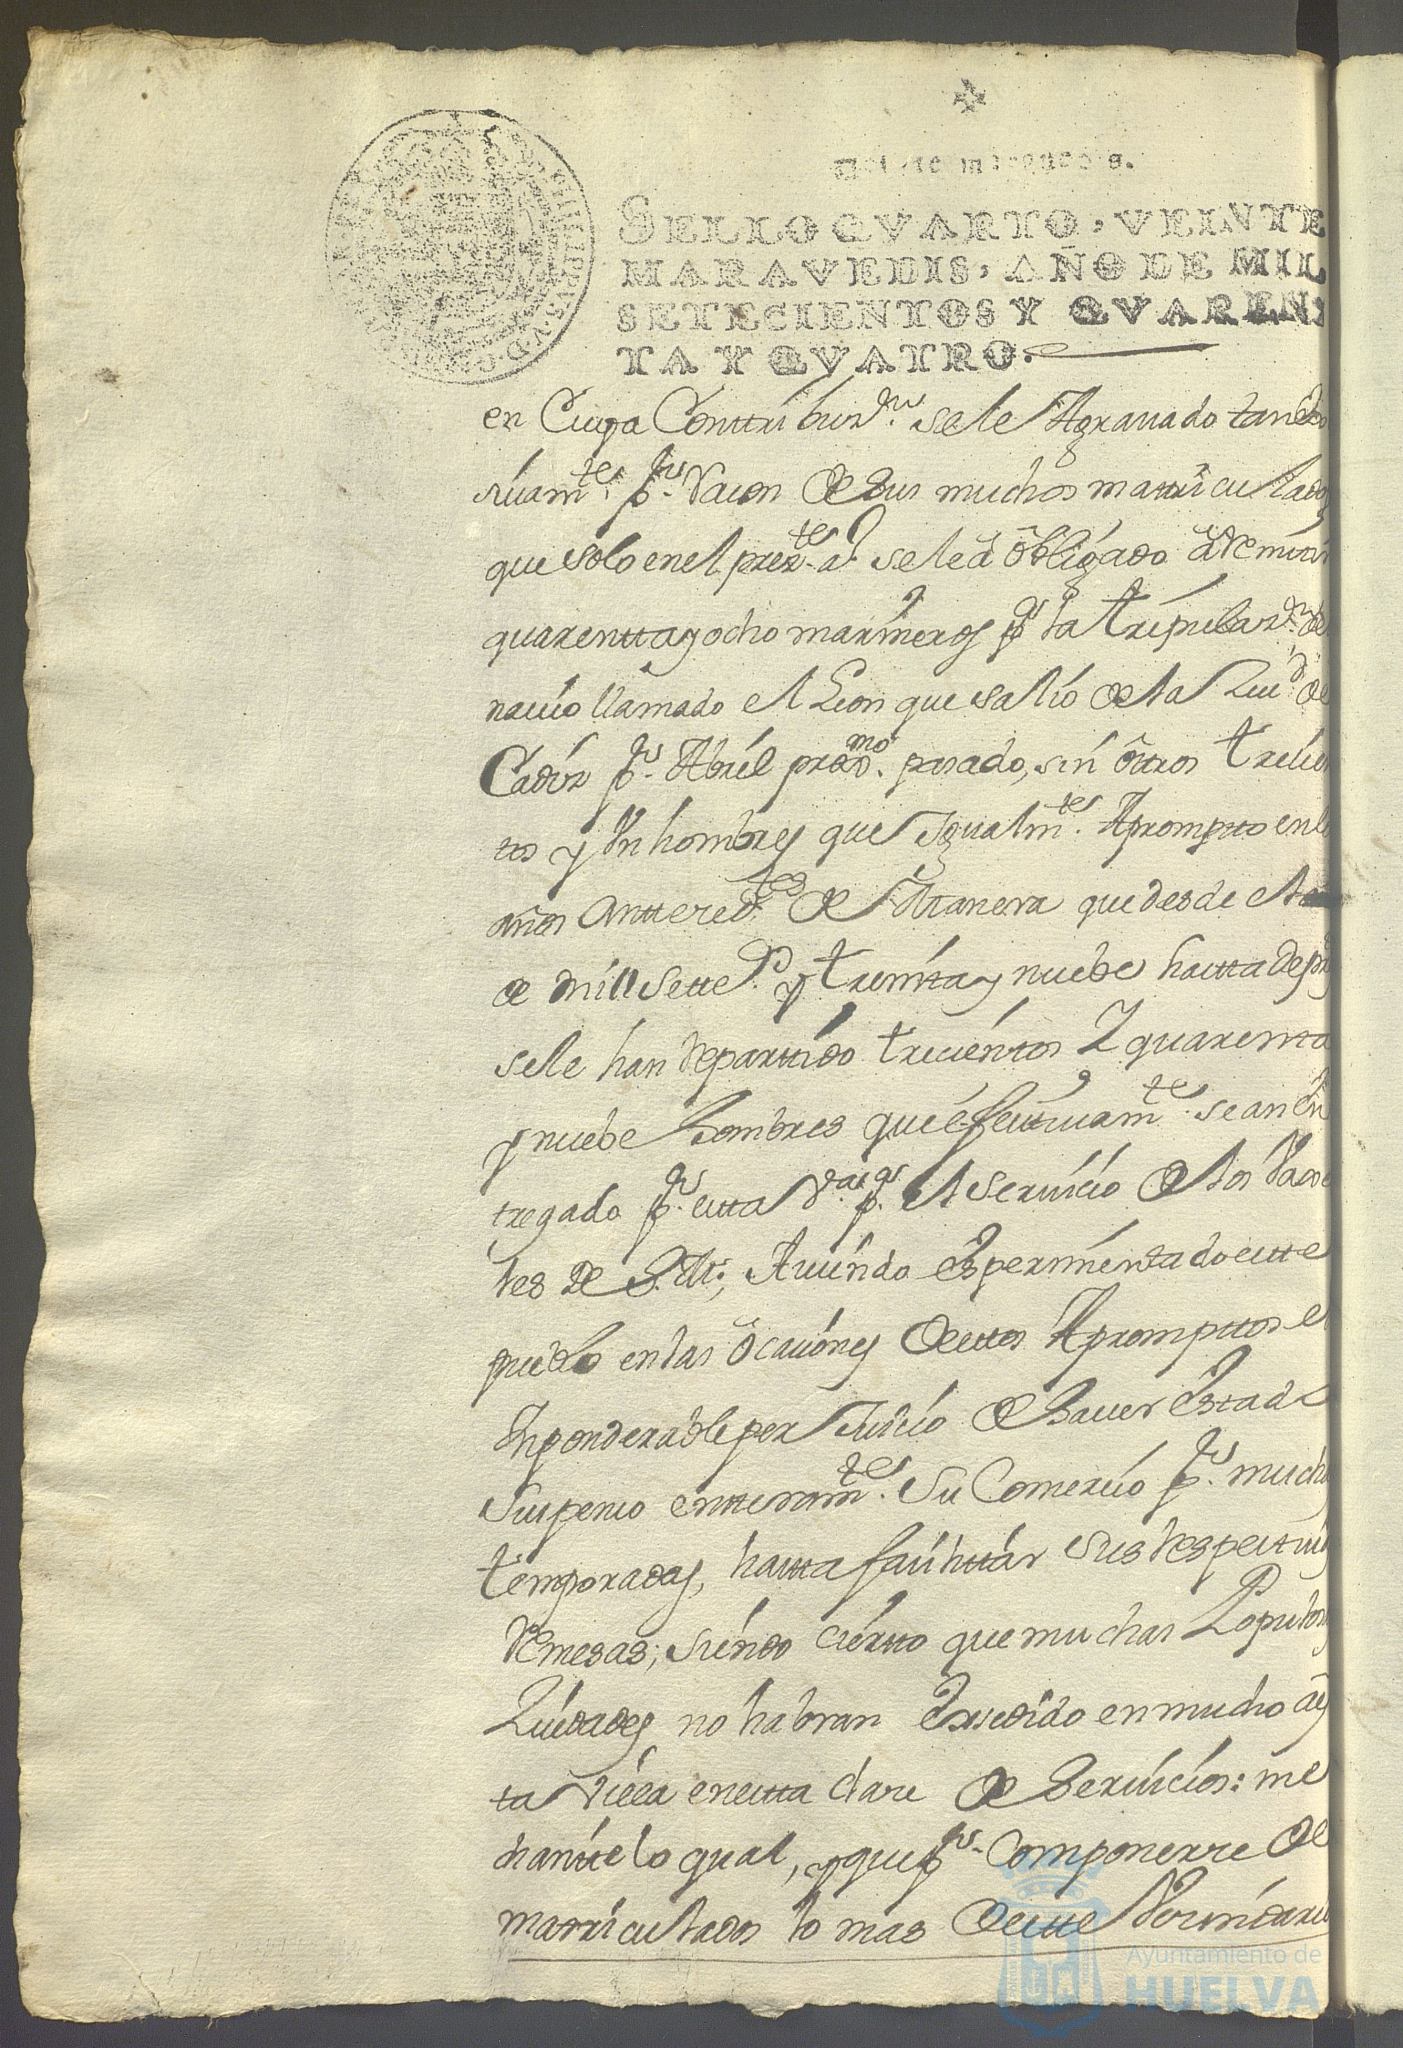 Veinte maravedis.
SELLO QVARTO, VEINTE
MARAVEDIS, AÑO DE MIL
SETECIENTOS Y QVAREN,
TA Y QVATRO.
en Cuya Conttribuz.on se le Agrauado tan
siuam.te p.r Razon de sus muchos mattriculados
que solo en el prez.te a.o se le á óbligado á Remitir
quarentta y ocho marineros p.a la Tripulaz.n de
nauio llamado el Leon que salió de la Ziud.d de
Cadiz p.r Abril prox.mo pasado, sin ôttros trecien
tos y Vn hombres que Igualm.te Apromptto en los
años Anttered.tes de Manera que desde el a
de mill sette.s y treinta y nuebe hastta de pr
se le han Repartido trecientos Y quarenta
y nuebe hombres que efectiuam.te se an en
tregado p.r estta V.a p.a el seruicio de los Vaxe
les de S. M.; Auiendo Experimentado estte
pueblo en las ôcasiones de esttos Apromptos el
Inponderable per Juicio de hauer Estado
Suspenso entteram.te Su Comercio p.r muchas
temporadas, hastta facilittar sus Respectiuas
Remesas; siendo ciertto que muchas Populosas
Ziudades no habran Exsedido en mucho á es
ta Villa en estta clase de Seruicios: me
diantte lo qual, y que p.r Componerse de
mattriculados lo mas de estte Vecindario
Ayuntamiento de
HUELVA